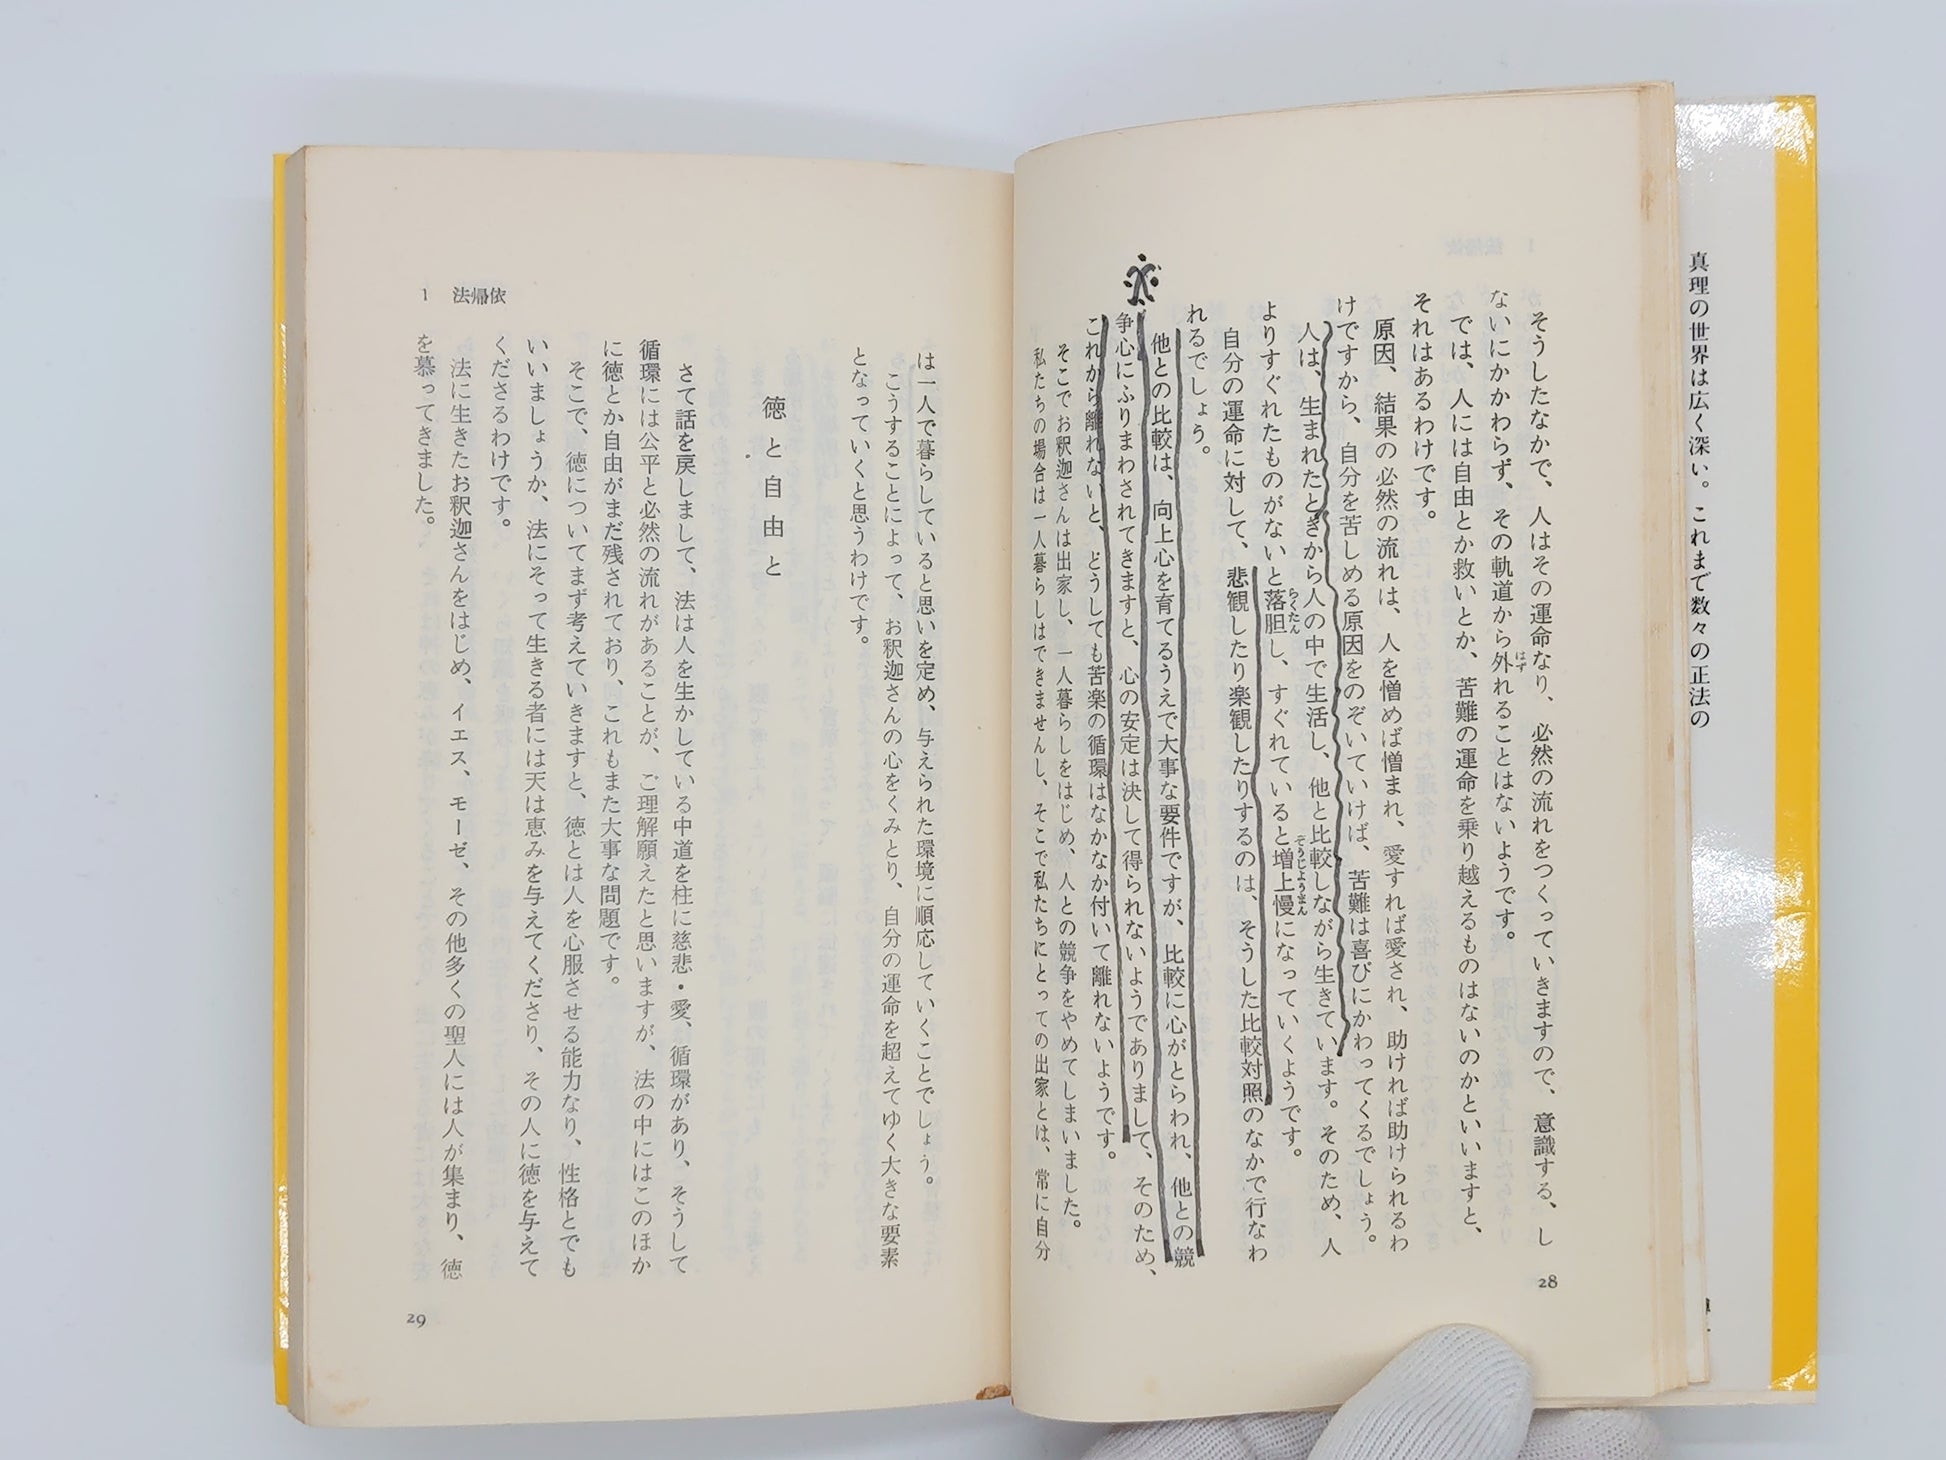 真理の世界は広く深い。これまで数々の正法の
そうしたなかで、人はその運命なり、必然の流れをつくっていきますので、意識する、し
ないにかかわらず、その軌道から外れることはないようです。
はず
では、人には自由とか救いとか、苦難の運命を乗り越えるものはないのかといいますと、
それはあるわけです。
原因、結果の必然の流れは、人を憎めば憎まれ、愛すれば愛され、助ければ助けられるわ
けですから、自分を苦しめる原因をのぞいていけば、苦難は喜びにかわってくるでしょう。
人は、生まれたときから人の中で生活し、他と比較しながら生きています。そのため、人
よりすぐれたものがないと落胆し、すぐれていると増上慢になっていくようです。
らくたん
ぞうじょうまん
自分の運命に対して、悲観したり楽観したりするのは、そうした比較対照のなかで行なわ
れるでしょう。
他との比較は、向上心を育てるうえで大事な要件ですが、比較に心がとらわれ、他との競
争心にふりまわされてきますと、心の安定は決して得られないようでありまして、そのため、
これから離れないと、どうしても苦楽の循環はなかなか付いて離れないようです。
そこでお釈迦さんは出家し、一人暮らしをはじめ、人との競争をやめてしまいました。
私たちの場合は一人暮らしはできませんし、そこで私たちにとっての出家とは、常に自分
28
は一人で暮らしていると思いを定め、与えられた環境に順応していくことでしょう。
こうすることによって、お釈迦さんの心をくみとり、自分の運命を超えてゆく大きな要素
となっていくと思うわけです。
徳と自由と
さて話を戻しまして、法は人を生かしている中道を柱に慈悲・愛、循環があり、そうして
循環には公平と必然の流れがあることが、ご理解願えたと思いますが、法の中にはこのほか
に徳とか自由がまだ残されており、これもまた大事な問題です。
そこで、徳についてまず考えていきますと、徳とは人を心服させる能力なり、性格とでも
いいましょうか、法にそって生きる者には天は恵みを与えてくださり、その人に徳を与えて
くださるわけです。
法に生きたお釈迦さんをはじめ、イエス、モーゼ、その他多くの聖人には人が集まり、徳
を慕ってきました。
1 法帰依
29